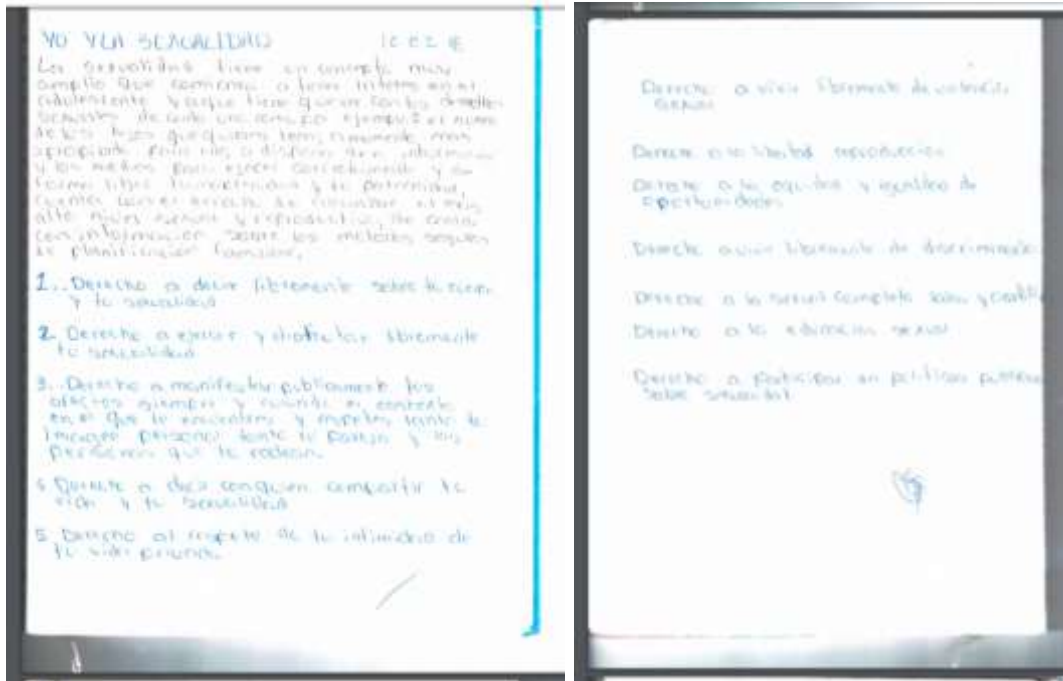 YO Y LA SEXUALIDAD
La sexualidad tiene un concepto muy
amplio que comienza a tener interes en el
adolescente ya que tiene que ver con los
sexuales de cada uno ejemplo el numero
de los hijos que quieras tener, el momento mas
apropiado para a disponer de la información
y los medios para ejercer correctamente y de
forma libre tu maternidad y tu paternidad,
el mas
alto nivel sexual y reproductiva, de contar
con información sobre los metodos seguros
de planificacion familiar.
1.. Derecho a decidir libremente sobre tu cuerpo
y tu sexualidad
2. Derecho a ejercer y disfrutar libremente
tu sexualidad
3.. Derecho a manifestar publicamente tus
afectos siempre y cuando el contexto
en el que te encuentres y respetes tanto tu
imagen personal tanto tu pareja y las
personas que te rodean.
4 Derecho a con quien compartir tu
vida y tu sexualidad
5 Derecho al respeto de tu intimidad de
tu vida privada.
Derecho a vivir libremente de violencia
sexual
Derecho a la libertad reproduccion
Derecho a la equidad y igualdad de
oportunidades
Derecho a vivir libremente de discriminacion
Derecho a la completa
Derecho a la educacion sexual
Derecho a participar en politicas publicas
sobre sexualidad